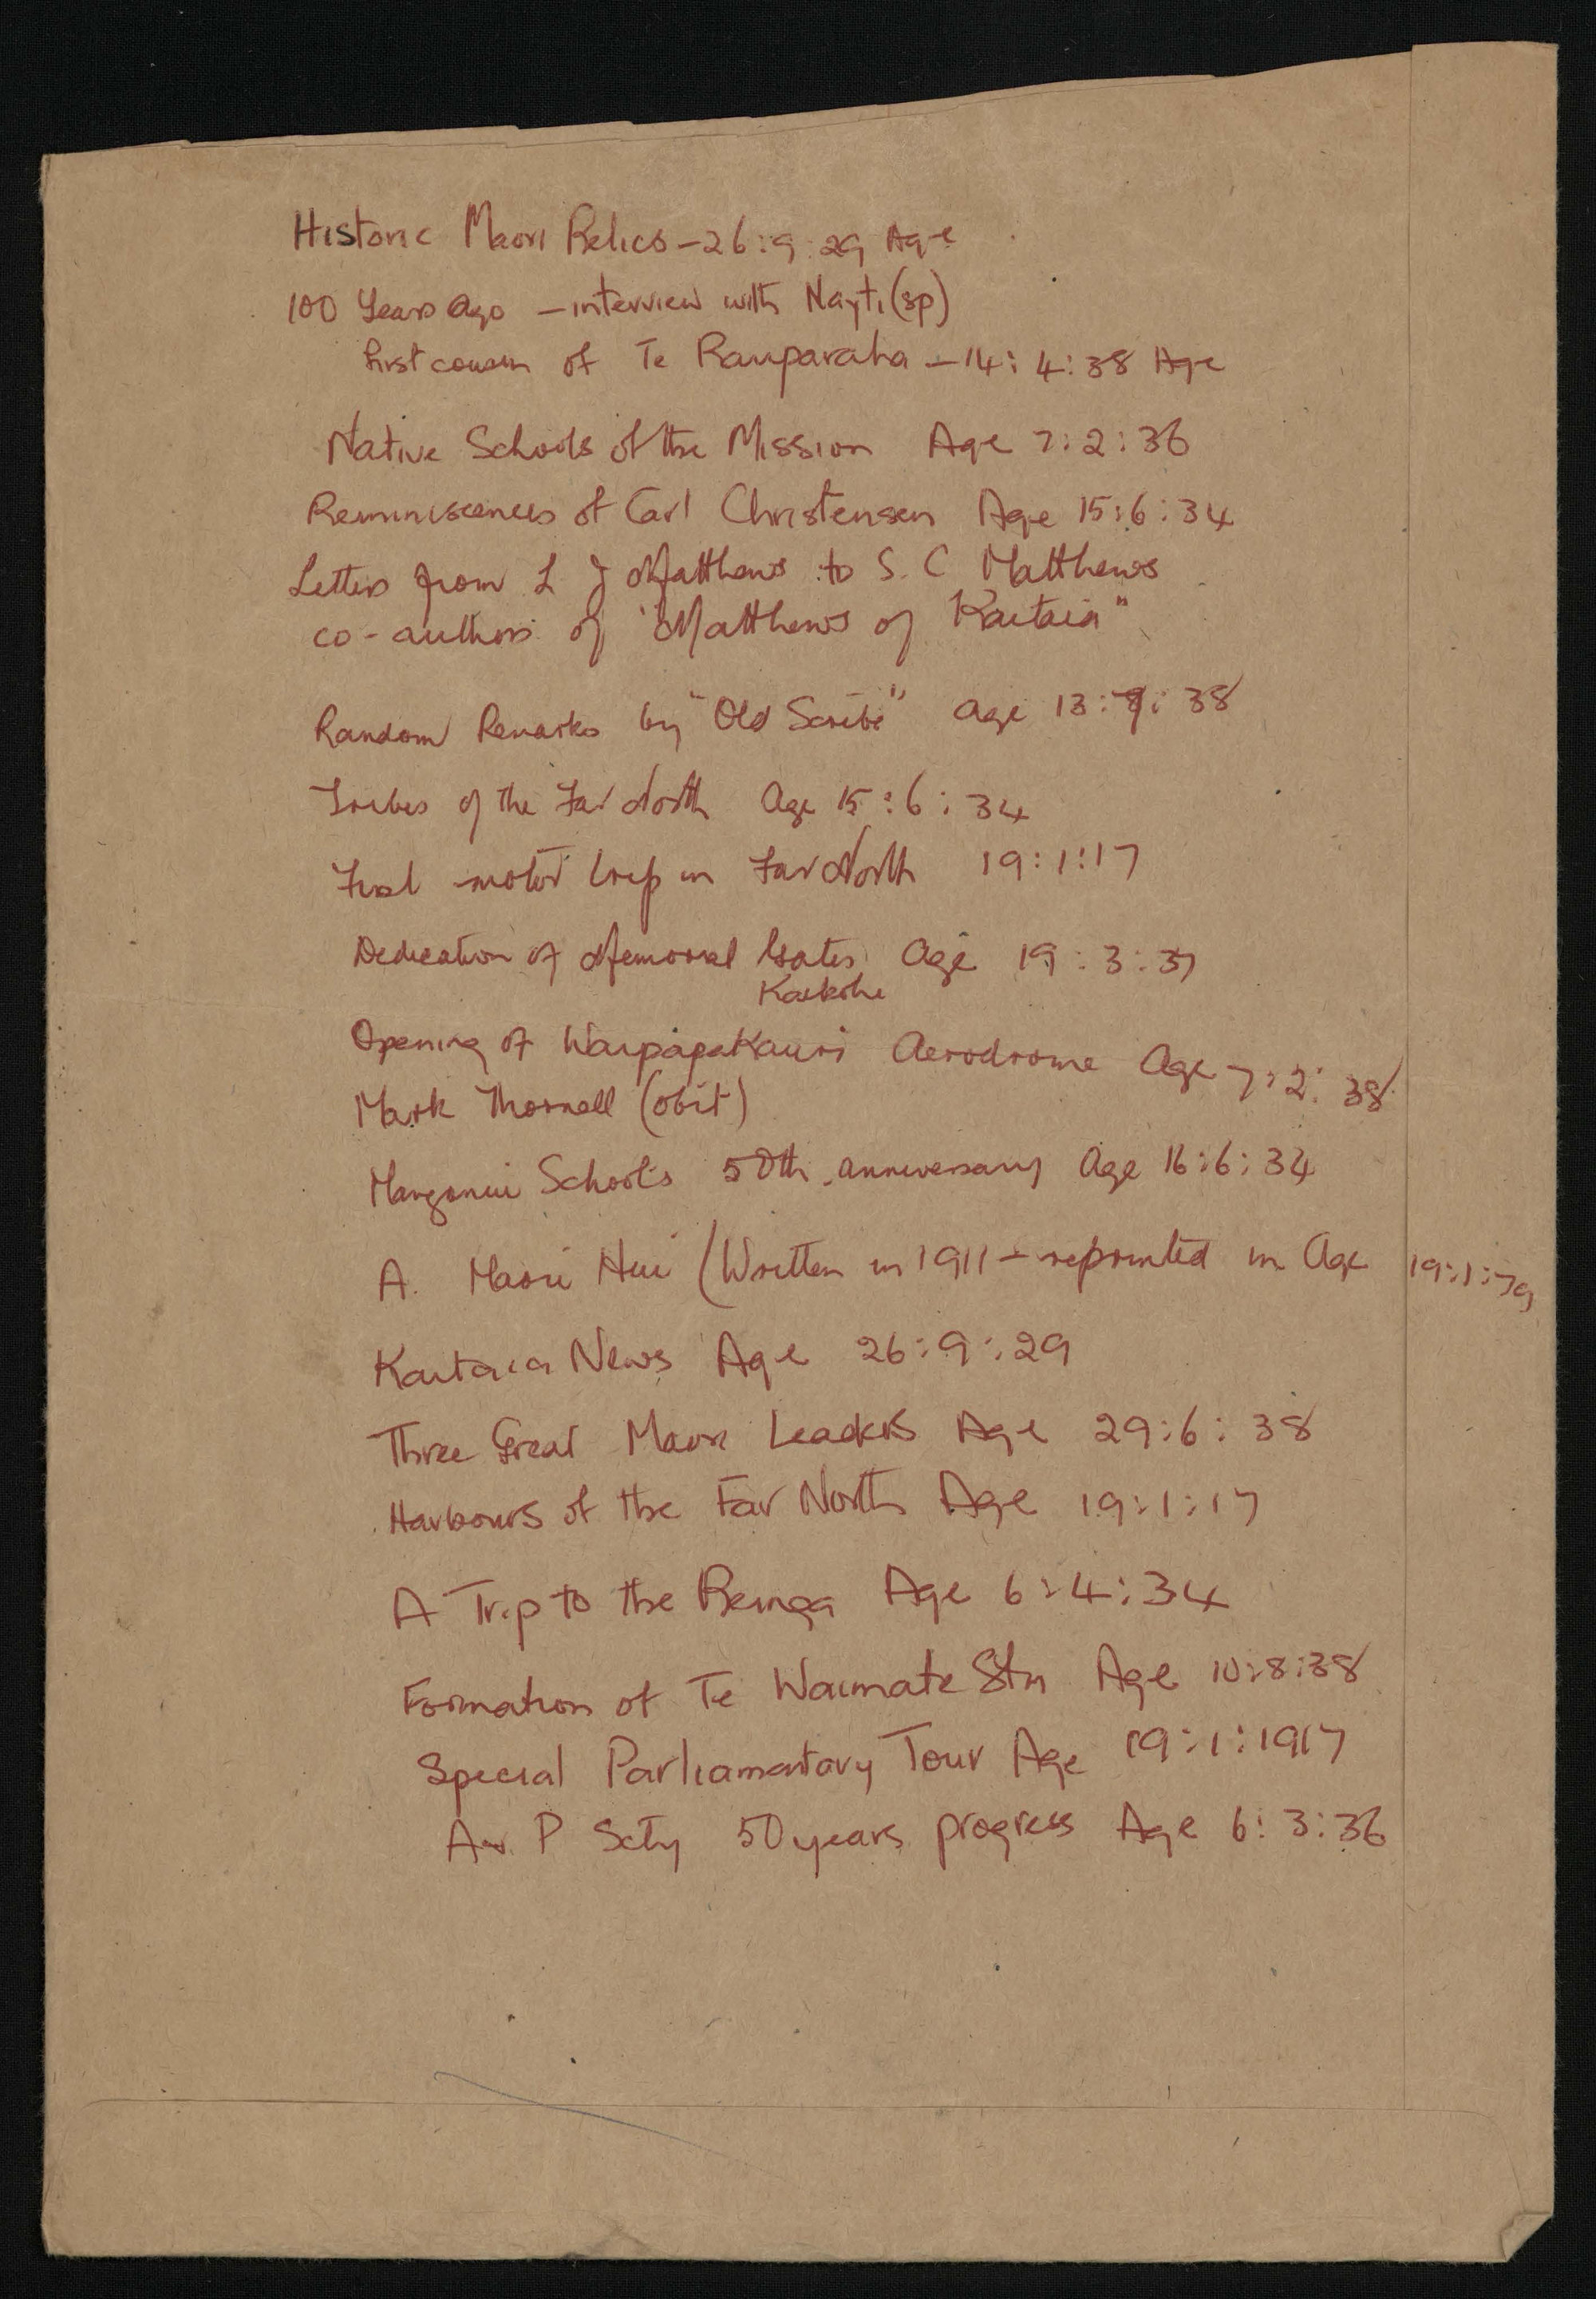 Historic Maori Relics - 26:9:29 Age
100 Years Ago - interview with Nayti (sp)
first cousin of Te Rauparaha - 14:4:38 Age
Native Schools of the Mission Age 7:2:36
Reminiscences of Carl Christensen Age 15:6:34
Letters from L J Matthews to S. C Matthews
co-authors of "Matthews of Kaitaia"
Random Remarks by "Old Scribe" Age 13: :38
Tribes of the Far North Age 15:6:34
First motor trip in Far North 19:1:17
Dedication of Memorial Gates Age 19:3:37
Kaikohe
Opening of Waipapakauri Aerodrome Age 7:2:38
Mark Thornell (obit)
Mangonui School's 50th anniversary Age 16:6:34
A. Maori Hui (Written in 1911 - reprinted in Age 19:1:79
Kaitaia News Age 26:9:29
Three Great Maori Leaders Age 29:6:38
Harbours of the Far North Age 19:1:17
A Trip to the Reinga Age 6:4:34
Formation of Te Waimate Stn Age 10:8:38
Special Parliamentary Tour Age 19:1:1917
A & P Scty 50 years progress Age 6:3:36